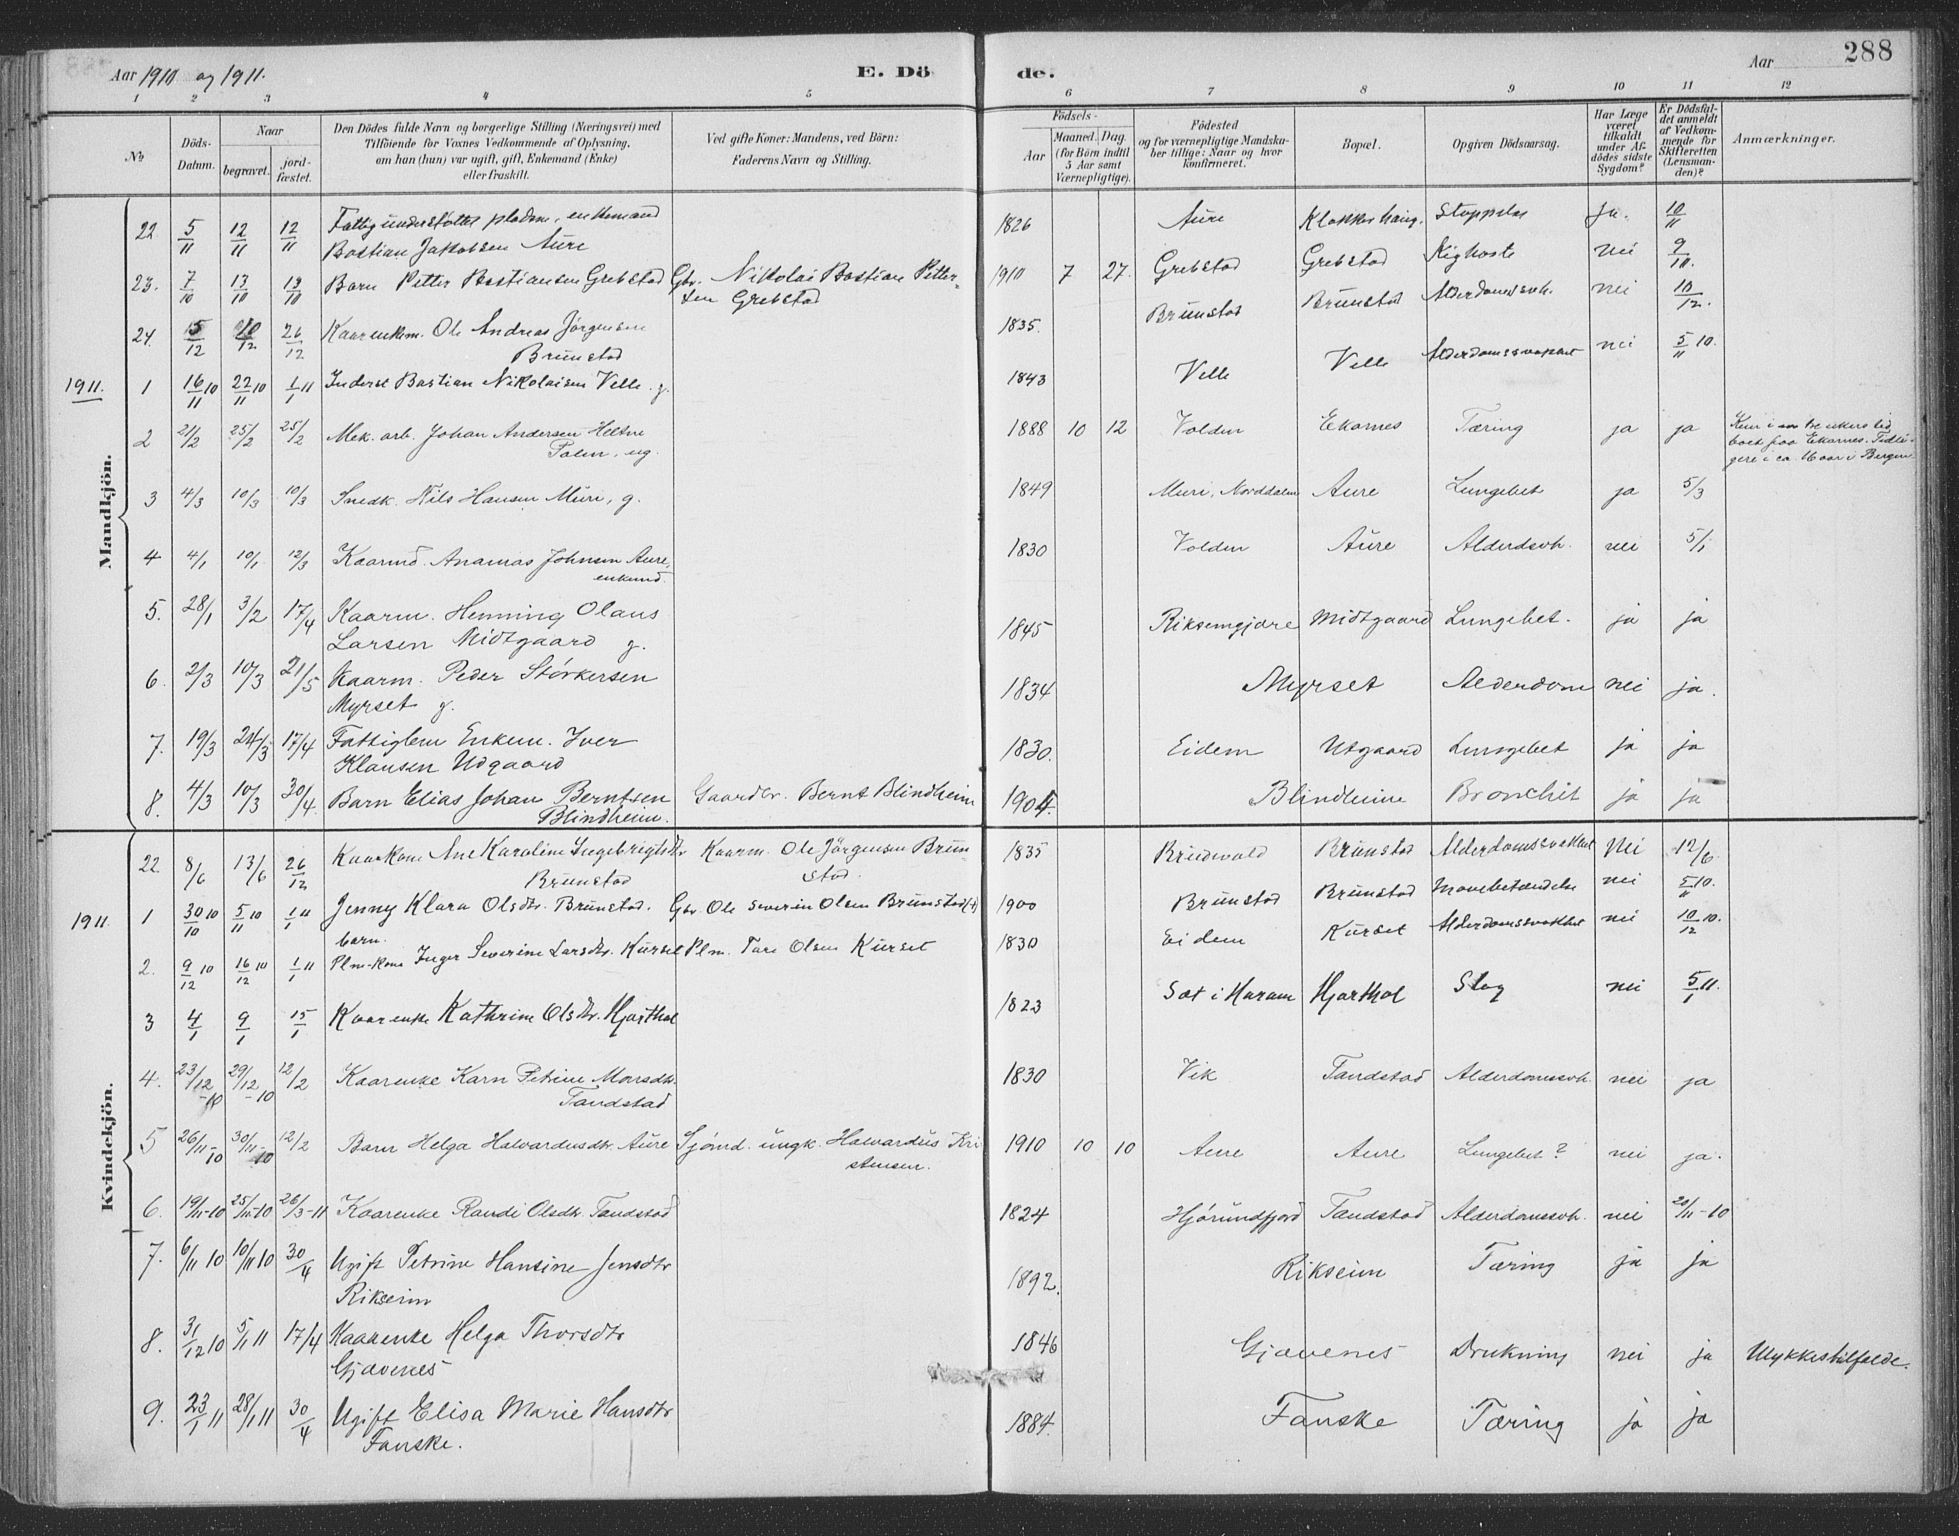 Aar 1910 og 1911. E. Dö de. Aar 288
1 2 3 4 5 6 7 8 9 10 11 12
No Döds-Datum. Naar begravet. jordfæstet. Den Dödes fulde Navn og borgerlige Stilling (Næringsvei) med
Tilföiende for Voxnes Vedkommende af Oplysning,
om han (hun) var ugift, gift, Enkemand (Enke)
eller fraskilt.
Ved gifte Koner: Mandens, ved Börn:
Faderens Navn og Stilling.
Födsels- Aar Maaned. Dag. (for Börn indtil 5 Aar samt Værnepligtige).
Födested
og for værnepligtige Mandskaber tillige: Naar og hvor konfirmeret.
Bopæl. Opgiven Dödsaarsag.
Har Læge været tilkaldt under Afdödes sidste Sygdom?
Er Dödsfaldet anmeldt af Vedkommende for Skifteretten (Lensmanden)?
Anmærkninger.
Mandkjön.
22 5/11 12/11 12/11 Fattigunderstøttet pladsm., enkemand 1826 Aure Klokkerhaug. ja. 10/11
Bastian Jakobsen Aure
23. 7/10 13/10 13/10 Barn Petter Bastiansen Grebstad Gbr. Nikolai Bastian Petter- 1910 7 27. Grebstad Grebstad Kighoste nei 9/10.
sen Grebstad
24. 15/12 26/12 Kaarenkem. Ole Andreas Jørgensen 1835. Brunstad Brunstad Alderdomssvh. nei 10/12.
Brunstad
1911. 1 16/11 10 22/11 10 1/1 11 Inderst Bastian Nikolaisen Velle. g. 1843 Velle Velle Alderdomssvakhet nei 5/11 10.
2 21/2 25/2 25/2 Mek. arb. Johan Andersen Heltne 1888 10 12 Volden Ekornes Tæring ja ja
ug. boet paa Ekornes. Tidli-
gere i ca. i Bergen
3 4/3 10/3 10/3 Snedk. Nils Hansen Muri, g. 1849 Muri, Norddalen Aure Lungebet ja 5/3
4 4/1 10/1 12/3 Kaarmd. Ananias Johnsen Aure, 1830 Volden Aure Alderdsvh. nei 5/1
enkemd.
5. 28/1 3/2 17/4 Kaarm. Henning Olaus 1845 Midtgaard Lungebet. ja ja
Larsen Midtgaard g.
6. 2/3 10/3 21/5 Kaarm. Peder Størkersen 1834 Myrset Alderdom nei ja.
Myrset g.
7. 19/3 24/3 17/4 Fattiglem Enkem. Iver 1830. Eidem Utgaard Lungebet ja ja
Klausen Udgaard
8. 4/3 10/3 30/4 Barn Elias Johan Berntsen Gaardbr. Bernt Blindheim 1904. Blindheim Bronchit ja ja
Blindheim.
Kvindekjön.
22. 8/6 13/6 26/12 Kaarkone Ane Karoline Ingebrigtsdtr Kaarm. Ole Jörgensen Brun- 1835 Brunstad Alderdomssvakhet Nei 12/6.
Brunstad stad.
1911. 1 30/10 10 5/11 10 1/1 11 Jenny Klara Olsdtr. Brunstad. Gbr. Ole Severin Olsen Brunstad (†) 1900 Brunstad Brunstad Mavebetændelse nei 5/11 10.
barn.
2. 9/12 10 16/12 10 1/1 11 Plm-kone Inger Severine Larsdtr. Kurset Plm. Tore Olsen Kurset 1830 Eidem Kurset Alderdomssvakhet nei 10/12 10.
3 4/1 9/1 15/1 Kaarenke Kathrine Olsdtr. Hjorthol 1823 Sæt i Haram Hjorthol Slag nei 5/1 11.
4. 23/12-10 29/12-10 12/2 Kaarenke Karn Petrine Monsdtr. 1830 Vik Tandstad Alderdomssvh. nei ja
Tandstad
5 26/11-10 30/11-10 12/2 Barn Helga Halvardusdtr. Aure Sjömd. ungk. Halvardus Kri- 1910 10 10 Aure Aure Lungebet? nei ja.
stensen.
6. 19/11-10 25/11-10 26/3-11 Kaarenke Randi Olsdtr. Tandstad 1824 Hjørundfjord Tandstad Alderdomssvh. nei 20/11-10
7. 6/11 10 10/11 10 30/4 Ugift Petrine Hansine Jensdtr 1892. Rikseim Tæring ja ja
Rikseim
8. 31/12 10 5/1 11 17/4 Kaarenke Helga Thorsdtr 1846 Gjævenes Drukning nei ja Ulykkestilfælde.
Gjævenes
9. 23/1 11 28/1 11 30/4 Ugift Elisa Marie Hansdtr 1884. Fauske Tæring ja ja
Fauske.